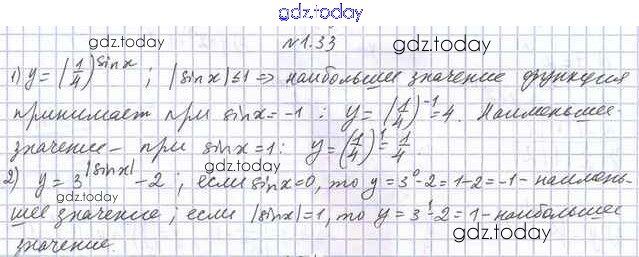 gdz.today
№1.33
gdz.today
gdz.today
1) y = (1/4)^sinx ; |sinx| ≤ 1 => наибольшее значение функция
принимает при sinx = -1 : y = (1/4)^-1 = 4. Наименьшее
значение – при sinx = 1: y = (1/4)^1 = 1/4
gdz.today
2) y = 3^|sinx| - 2 ; если sinx = 0, то y = 3^0 - 2 = 1 - 2 = -1 - наимень-
gdz.today
шее значение ; если |sinx| = 1, то y = 3^1 - 2 = 1 - наибольшее
gdz.today
значение.